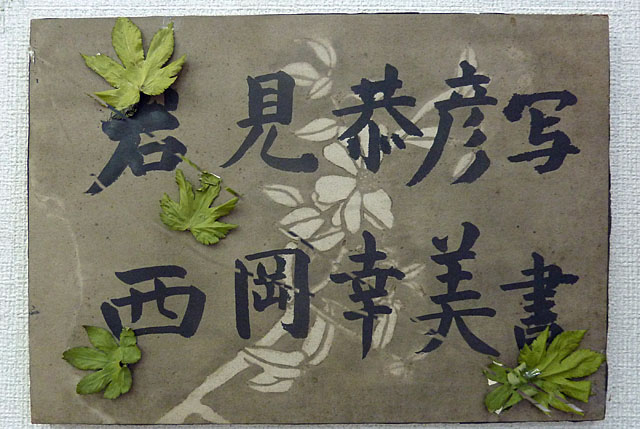 岩見恭彦写
西岡幸美書